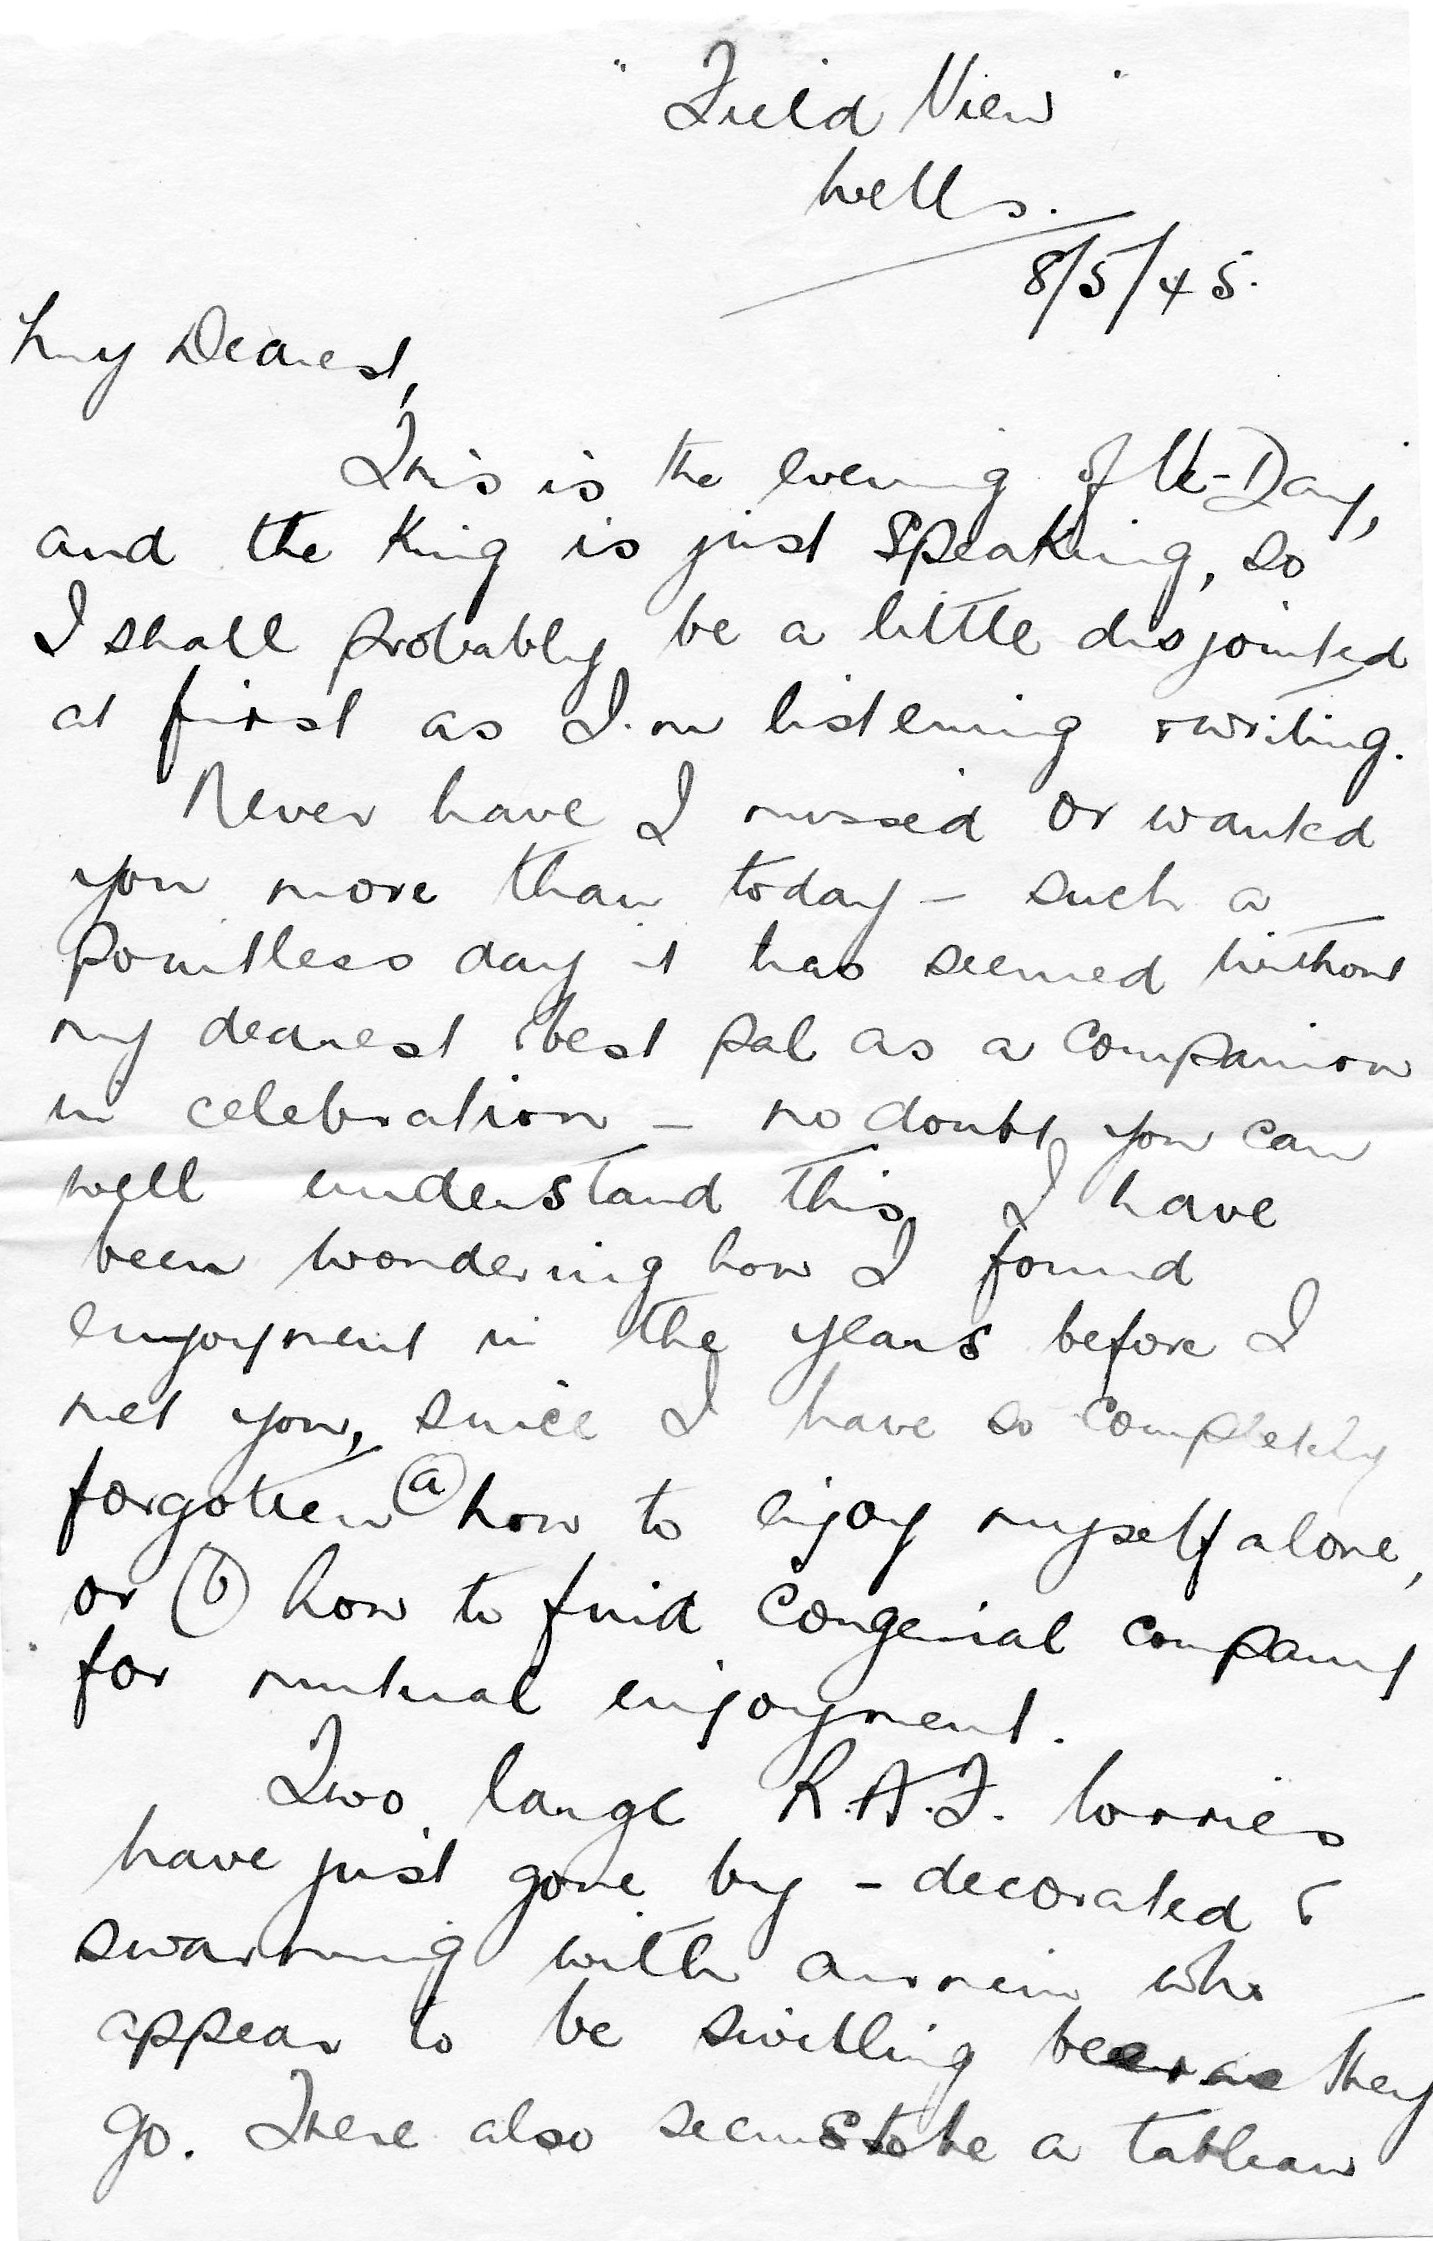 "Field View"
Wells.
8/5/45.
My Dearest,
This is the evening of Ve-Day,
and the King is just speaking, so
I shall probably be a little disjointed
at first as I'm listening & writing.
Never have I missed or wanted
you more than today – such a
pointless day it has seemed without
my dearest & best pal as a companion
in celebration – no doubt you can
well understand this. I have
been wondering how I found
enjoyment in the years before I
met you, since I have so completely
forgotten (a) how to enjoy myself alone,
or (b) how to find congenial company
for mutual enjoyment.
Two large R.A.F. lorries
have just gone by – decorated &
swarming with airmen who
appear to be swilling beer as they
go. There also seems to be a tableau